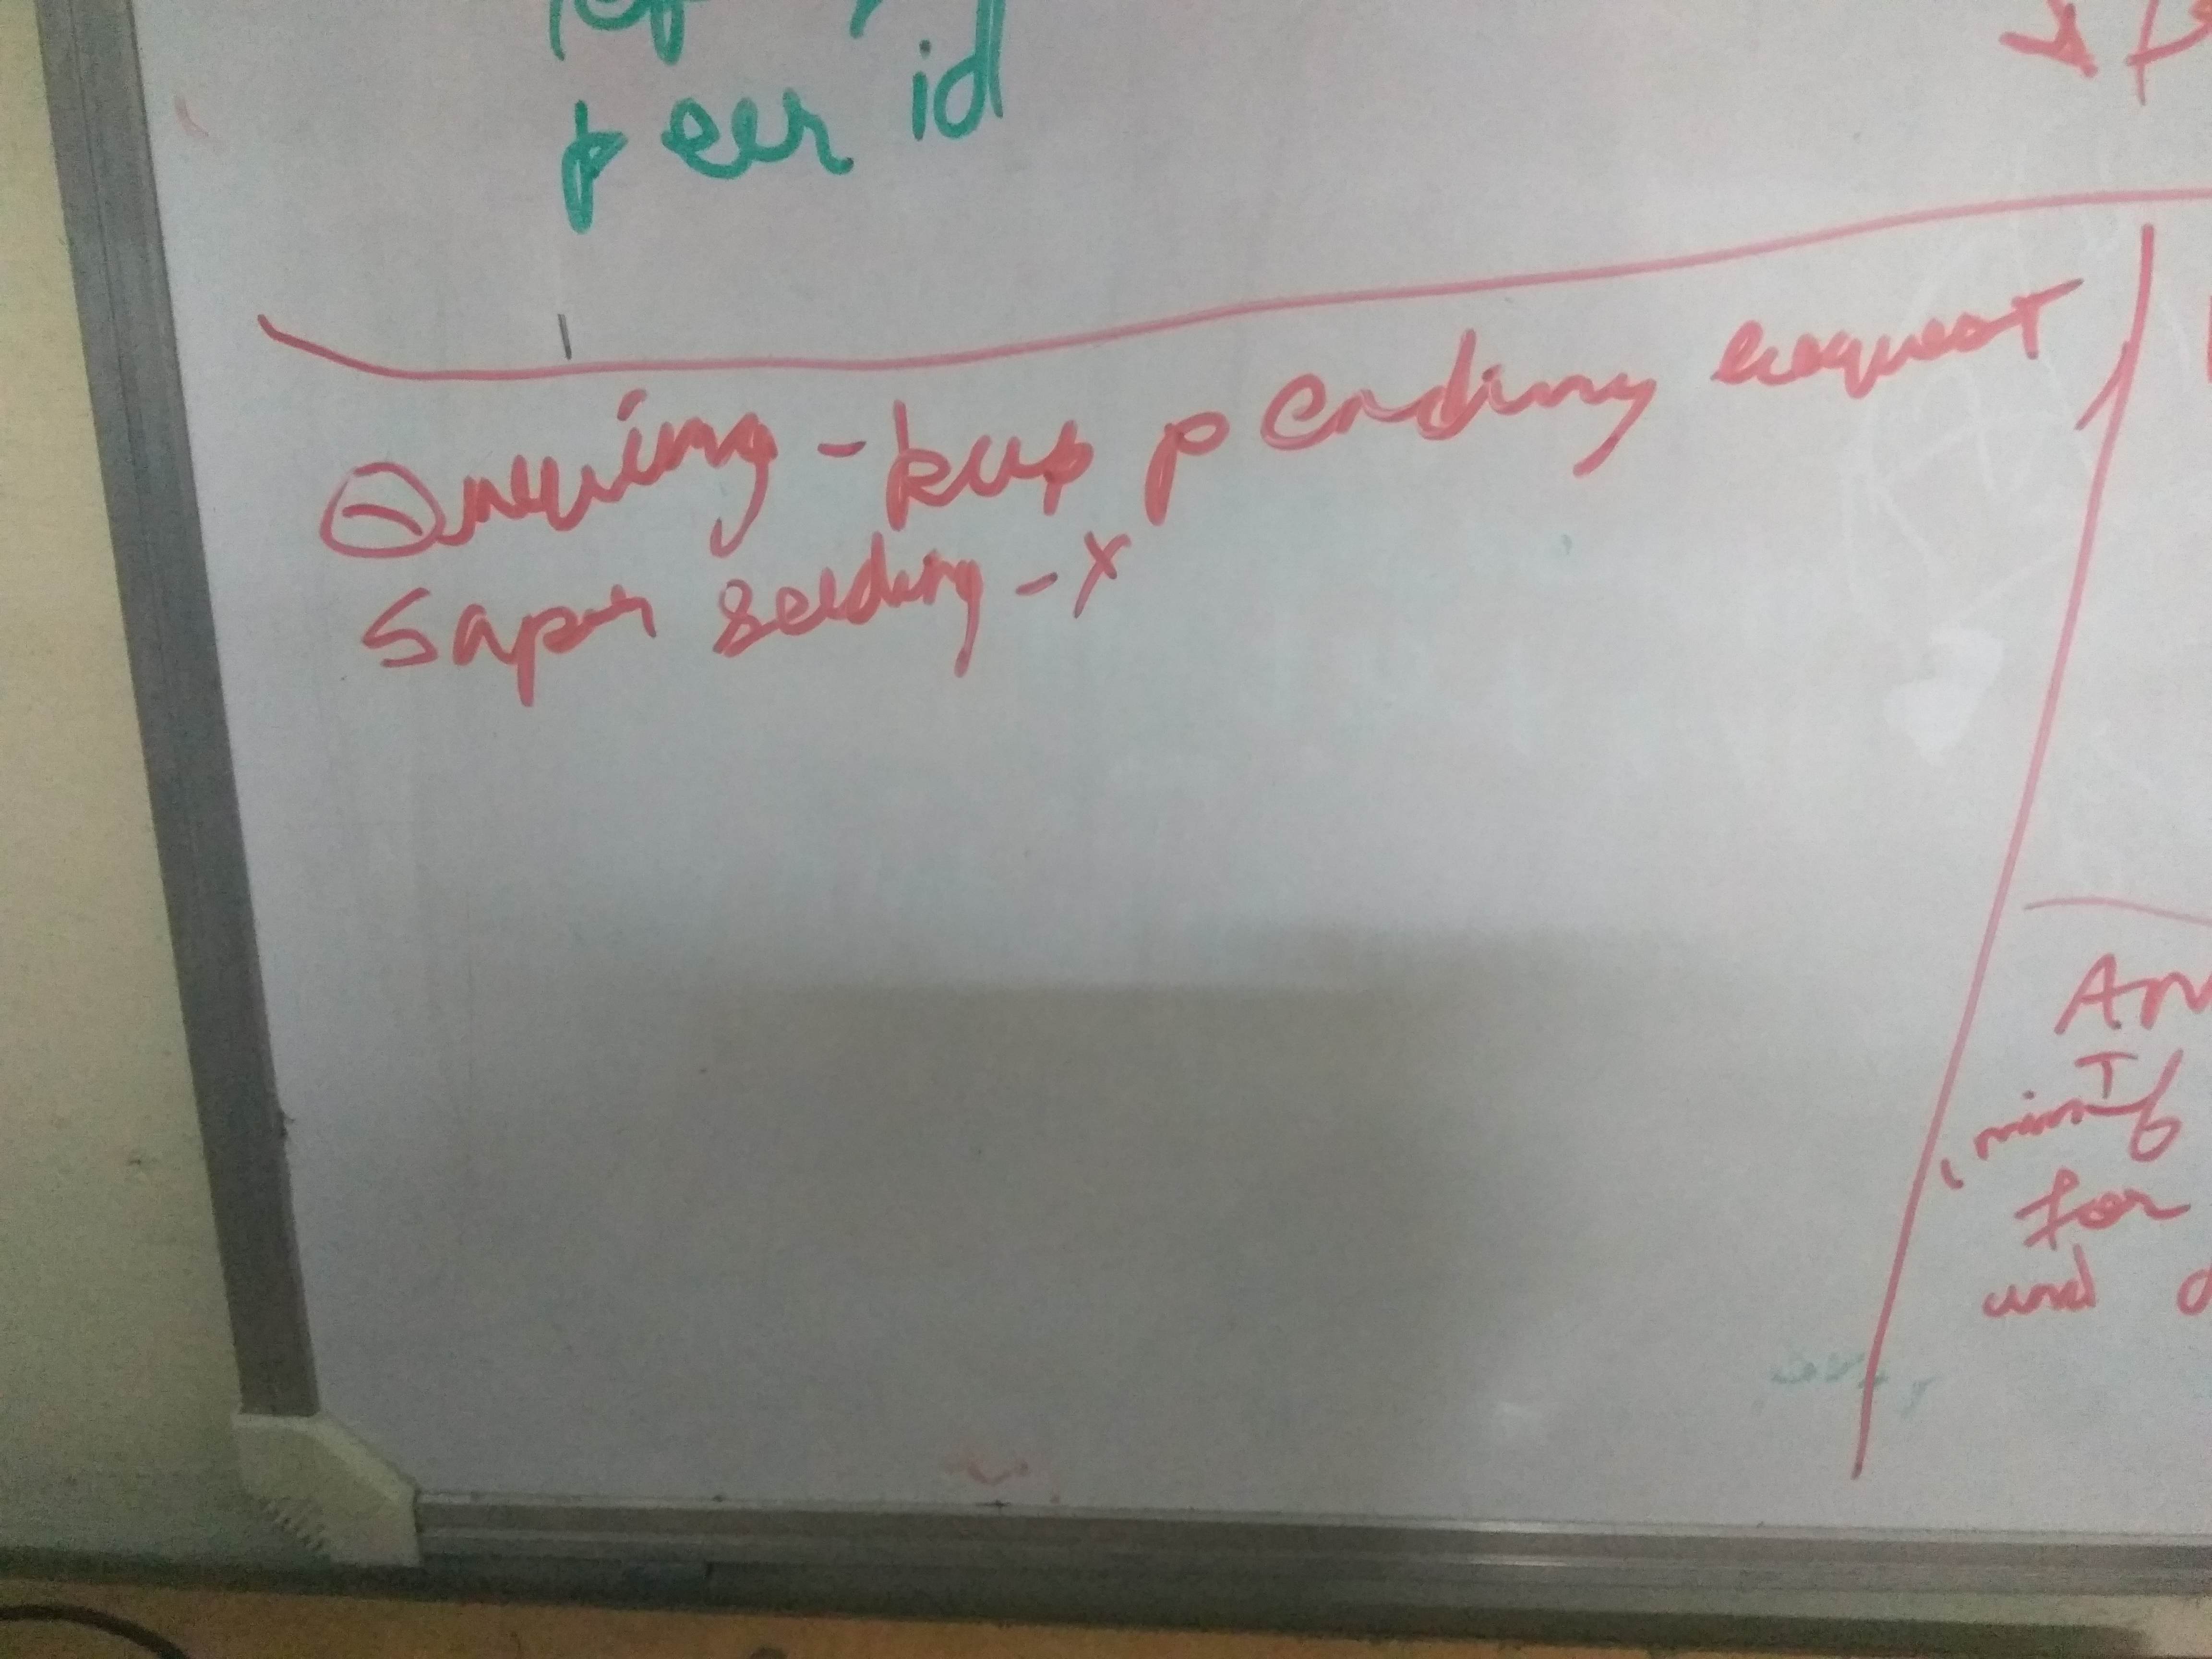 peer id
Queuing - keep pending request
Super seeding - x
An
min
for
und